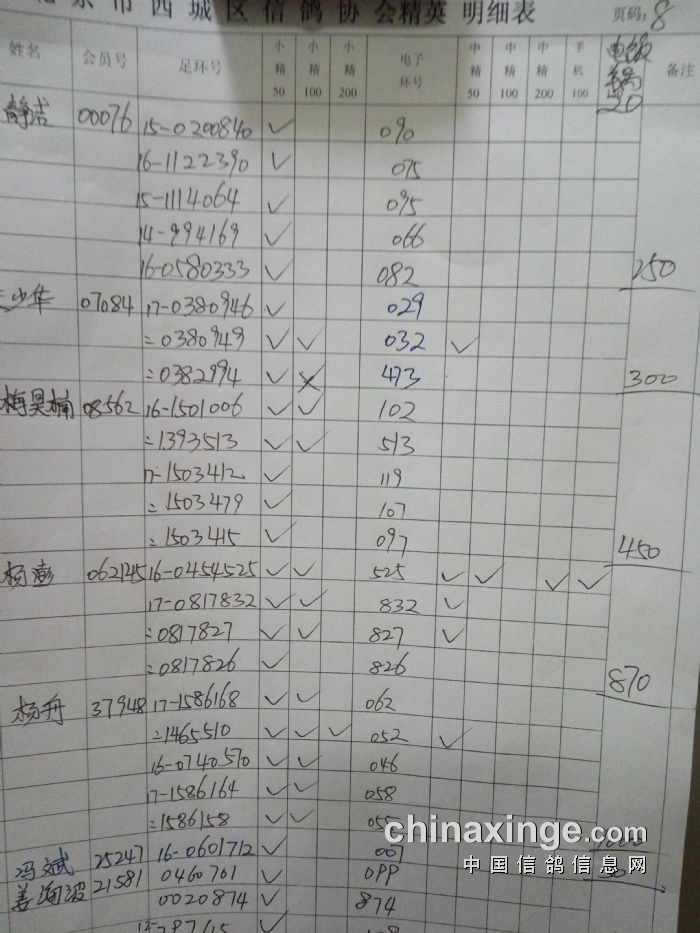 京市西城区信鸽协会精英 明细表 页码: 8
姓名 会员号 足环号 小精50 小精100 小精200 电子环号 中精50 中精100 中精200 手机100 备注
20
静洁 00076 15-0200840 ✓ 090
16-1122390 ✓ 075
15-1114064 ✓ 095
14-994169 ✓ 066
16-0580333 ✓ 082 250
少华 07084 17-0380946 ✓ 029
=0380949 ✓ ✓ 032 ✓
=0382994 ✓ 473 300
梅昊楠 08562 16-1501006 ✓ ✓ 102
=1393513 ✓ ✓ 513
17-1503412 ✓ 119
=1503479 ✓ 107
=1503415 ✓ 097 450
杨澎 062145 16-0454525 ✓ ✓ 525 ✓ ✓ ✓ ✓
17-0817832 ✓ ✓ 832 ✓
=0817827 ✓ ✓ 827 ✓
=0817826 ✓ 826 870
杨舟 37948 17-1586168 ✓ ✓ 062
=1465510 ✓ ✓ ✓ 052 ✓
16-0740570 ✓ ✓ 046
17-1586164 ✓ ✓ 058
=1586158 ✓ ✓
chinaxinge.com
冯斌 25247 16-0601712 ✓ 007
中国信鸽信息网
21581 0460701 ✓ 0PP
0020874 ✓ 874